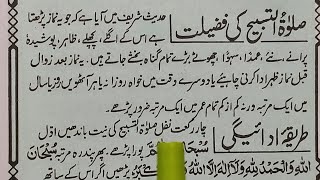 صلوٰۃ التسبیح کی فضیلت حدیث شریف میں آیا ہے کہ جو یہ نماز پڑھتا
ہے اس کے اگلے، پچھلے، ظاہر، پوشیدہ
پرانے، نئے، عمدًا، سہوًا، چھوٹے بڑے تمام گناہ بخشے جاتے ہیں۔ یہ نماز بعد زوال
قبل نماز ظہر ادا کرنی چاہیئے یا دوسرے وقت میں خواہ روزانہ یا ہر آٹھویں روز یا سال
میں ایک مرتبہ ورنہ کم از کم تمام عمر میں ایک مرتبہ ضرور پڑھے۔
طریقہ ادائیگی چار رکعت نفل صلوٰۃ التسبیح کی نیت باندھیں اوّل
سُبْحَا پورا پڑھے، پھر پندرہ مرتبہ سُبْحَانَ
وَالْحَمْدُ لِلّٰهِ وَلَا اِلٰهَ اِلَّا اللّٰهُ پڑھیں اس کے ساتھ